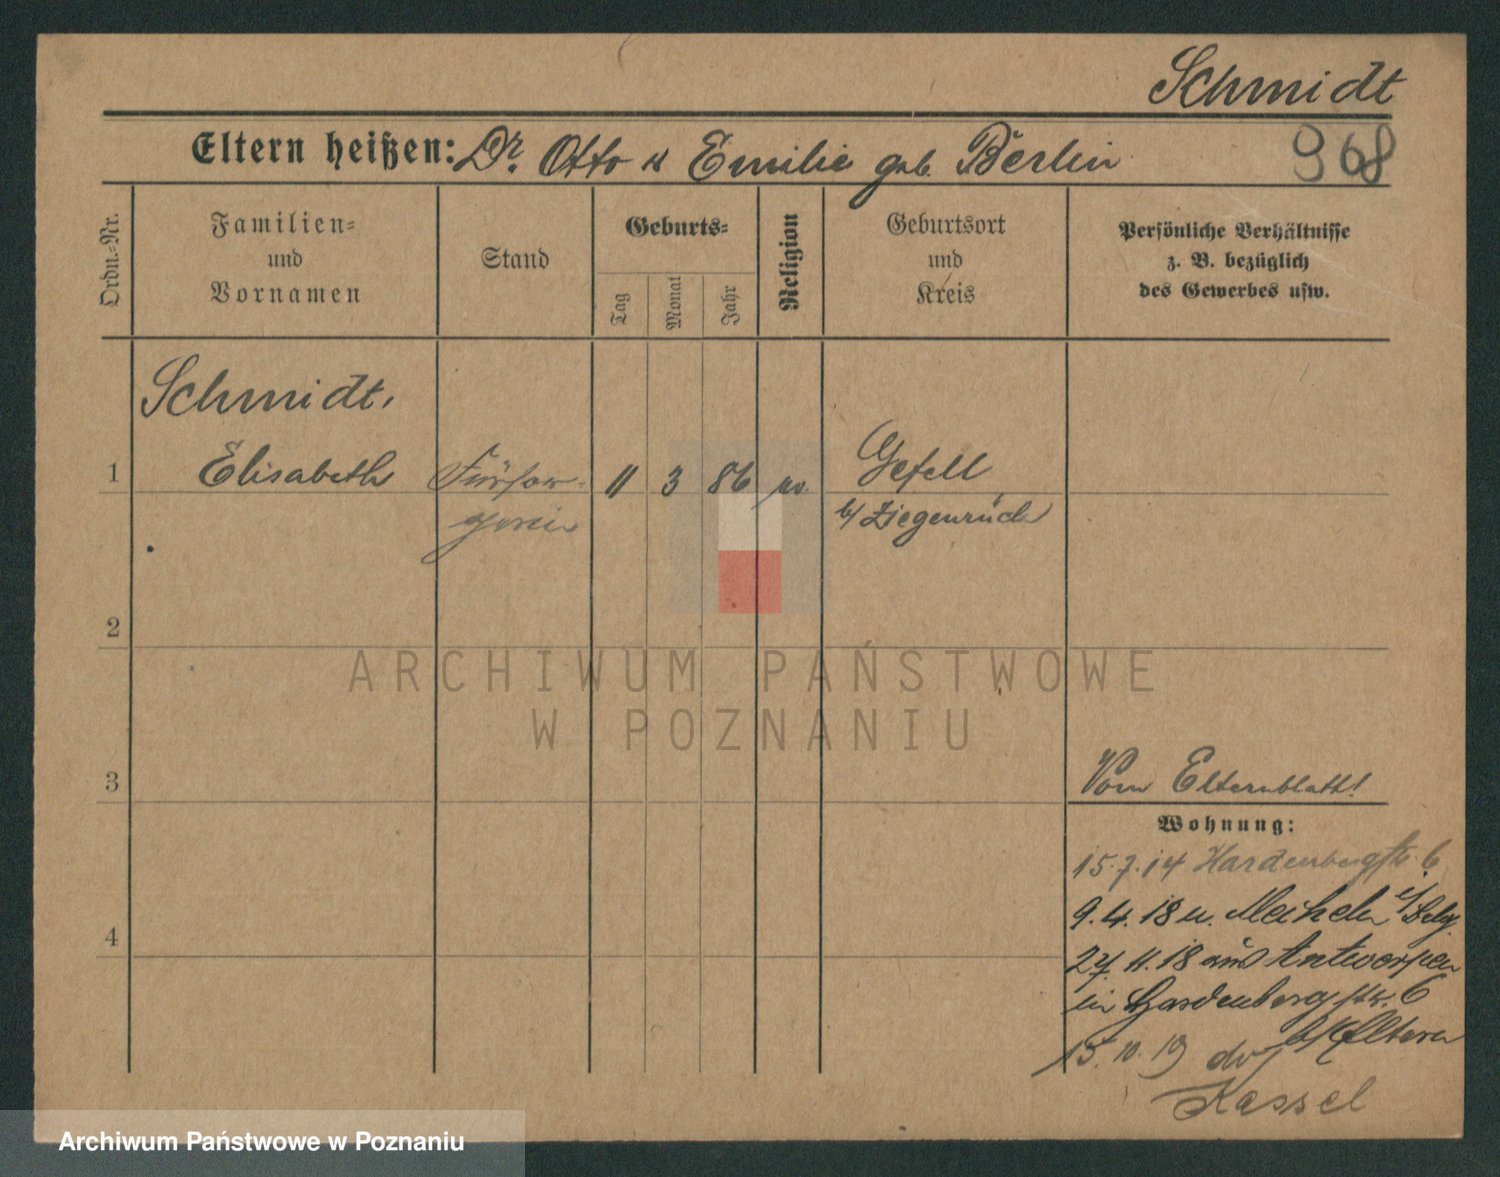 Schmidt
968
Eltern heißen: Dr. Otto u Emilie geb. Berlin
Ordn.-Nr.
Familien-
und
Vornamen
Stand
Geburts-
Tag
Monat
Jahr
Religion
Geburtsort
und
Kreis
Persönliche Verhältnisse
z. B. bezüglich
des Gewerbes usw.
Schmidt,
1 Elisabeth Fürsor- 11 3 86 Gefell
gerin b/ Ziegenrück
2
ARCHIWUM PAŃSTWOWE
W POZNANIU
3 Vom Elternblatt!
Wohnung:
15.7.14 Hardenbergstr. 6
9.4.18 n. Mecheln i/ Belg.
4
27.11.18 aus Antwerpen
in Hardenbergstr. 6
b/ Eltern
15.10.19
Kassel
Archiwum Państwowe w Poznaniu